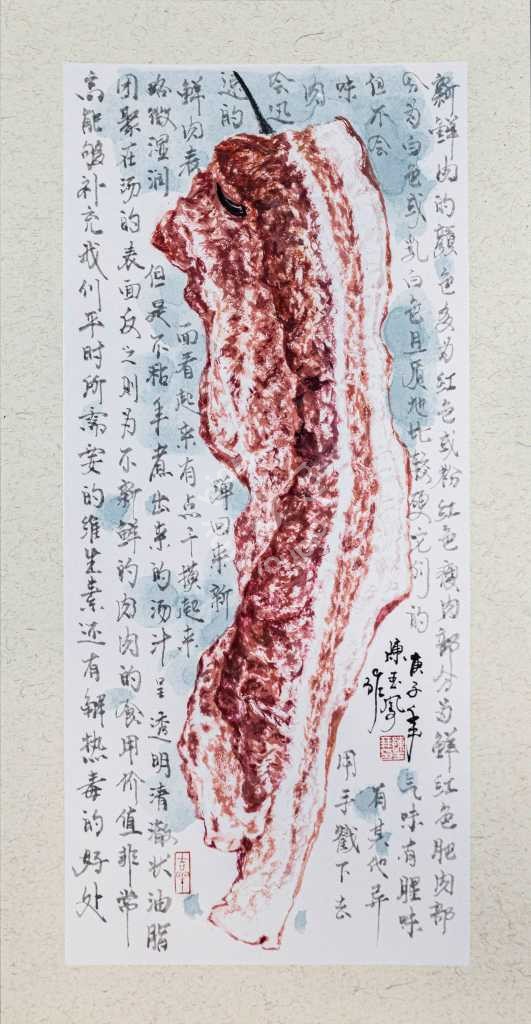 新鲜肉的颜色多为红色或粉红色瘦肉部分为鲜红色肥肉部
分为白色或乳白色且质地比较硬它们的气味有腥味
但不会有其他异
味用手戳下去
肉
会迅
速的弹回来新
鲜肉表面看起来有点干摸起来
略微湿润但是不粘手煮出来的汤汁呈透明清澈状油脂
团聚在汤的表面反之则为不新鲜的肉肉的食用价值非常
高能够补充我们平时所需要的维生素还有解热毒的好处
庚子年
陈玉凤